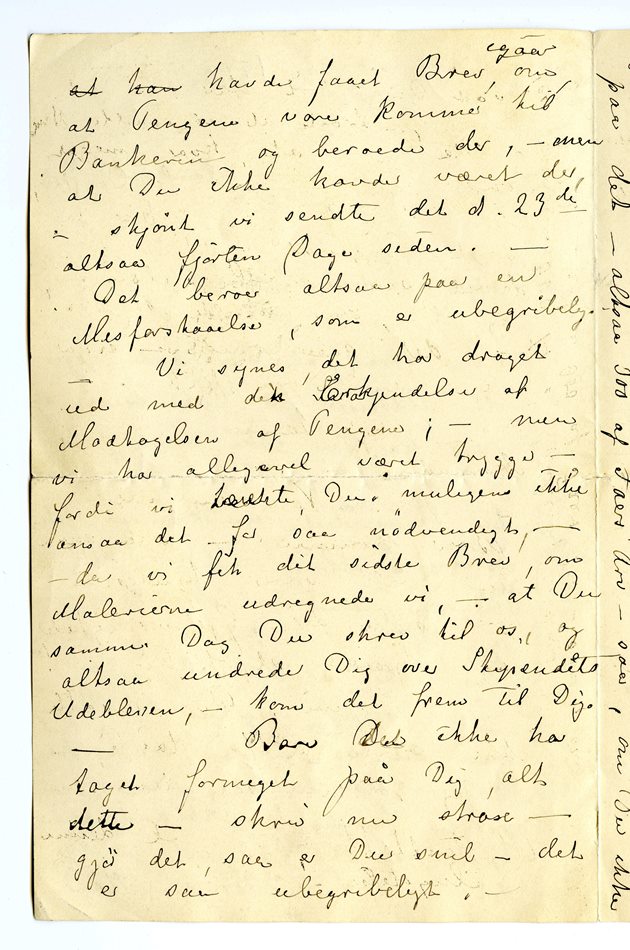 igaar
at han havde faaet Brev, om
at Pengene vare komne til
Bankeren og beroede der, – men
at Du ikke havde været der,
– skjönt vi sendte det d. 23de
altsaa fjorten Dage siden. –
Det beror altsaa paa en
Misforstaaelse, som er ubegribelig.
– Vi synes, det har draget
ud med den Erkjendelse af
Modtagelsen af Pengene; – men
vi har allegevel været trygge –
fordi vi tænkte, Du muligens ikke
ansaa det for saa nödvendigt, –
– da vi fik dit sidste Brev, om
Malerierne udregnede vi, – at Du
samme Dag Du skrev til os, og
altsaa undrede Dig over Stipendiets
Udebleven, – kom det frem til Dig.
– Bare Det ikke har
taget formeget paa Dig, alt
dette – skriv nu strax –
gjö det, saa er Du snil – det
er saa ubegribeligt, –
paa det – altsaa 100 af Faers Arv – saa, om Du ikke